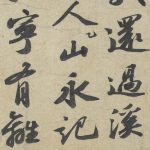 還過溪
人山永記
寧有離